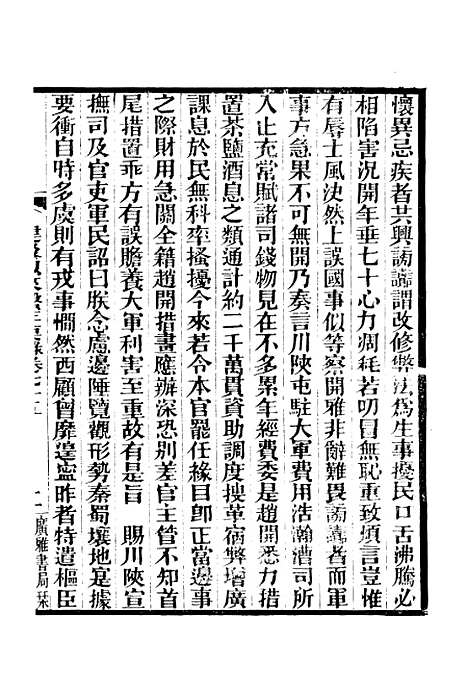 懷異忌疾者共興謗讟謂改修弊法爲生事擾民口舌沸騰必
相陷害况開年垂七十心力凋耗若叨冒無恥重致煩言豈惟
有辱士風決然上誤國事似等察開雅非辭難畏謗者而軍
事方急果不可無開乃奏言川陝屯駐大軍費用浩瀚漕司所
入止充常賦諸司錢物見在亦不多累年經費委是趙開悉力措
置茶鹽酒息之類通計約二千萬貫資助調度搜革宿弊增廣
課息於民無科率搔擾今來若令本官罷任緣目卽正當邊事
之際財用急闕全籍趙開措畫應辦深恐别差官主管不知首
尾措置乖方有誤贍養大軍利害至重故有是旨　賜川陝宣
撫司及官吏軍民詔曰朕念慮邊陲覽觀形勢秦蜀壤地寔據
要衝自時多虞則有戎事惻然西顧曾靡遑寍昨者特遣樞臣
廣雅書局栞